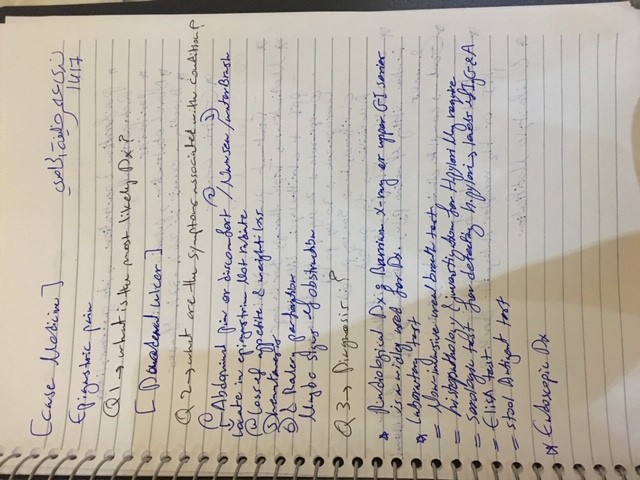 [Case Medicin]
1417
Epigastric pain
Q1→ what is the most likely Dx?
[Duodenal ulcer]
Q2→ what are the symptoms associated with condition?
① Abdominal pain or discomfort / Nausea / water Brash
locate in epigastrium Not radiate
② Loss of appetite & weight loss
③
④ Rarely perforation
Maybe signs of obstruction
Q3→ Diagnosis..?
* Radiological Dx: Barium X-ray or upper GI series
is widely used for Dx.
* Laboratory test
= Non-invasive urea breath test
= Histopathology & investigation for H.pylori
= Serologic test for detecting h.pylori, IgG & A
= Elisa test
= stool Antigent test
* Endoscopic Dx